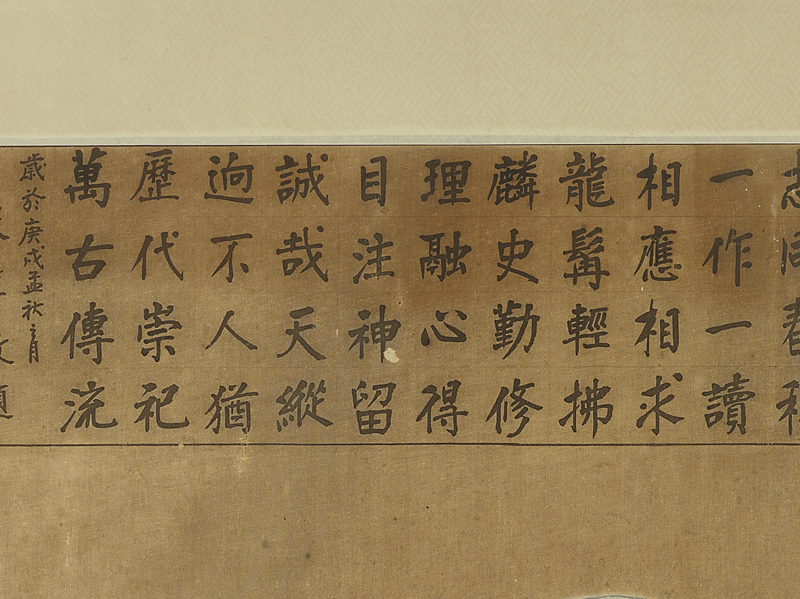 志同春秋
一作一讀
相應相求
龍髯輕拂
麟史勤修
理融心得
目注神留
誠哉天縱
迥不人猶
歷代崇祀
萬古傳流
歲於庚戌孟秋之月